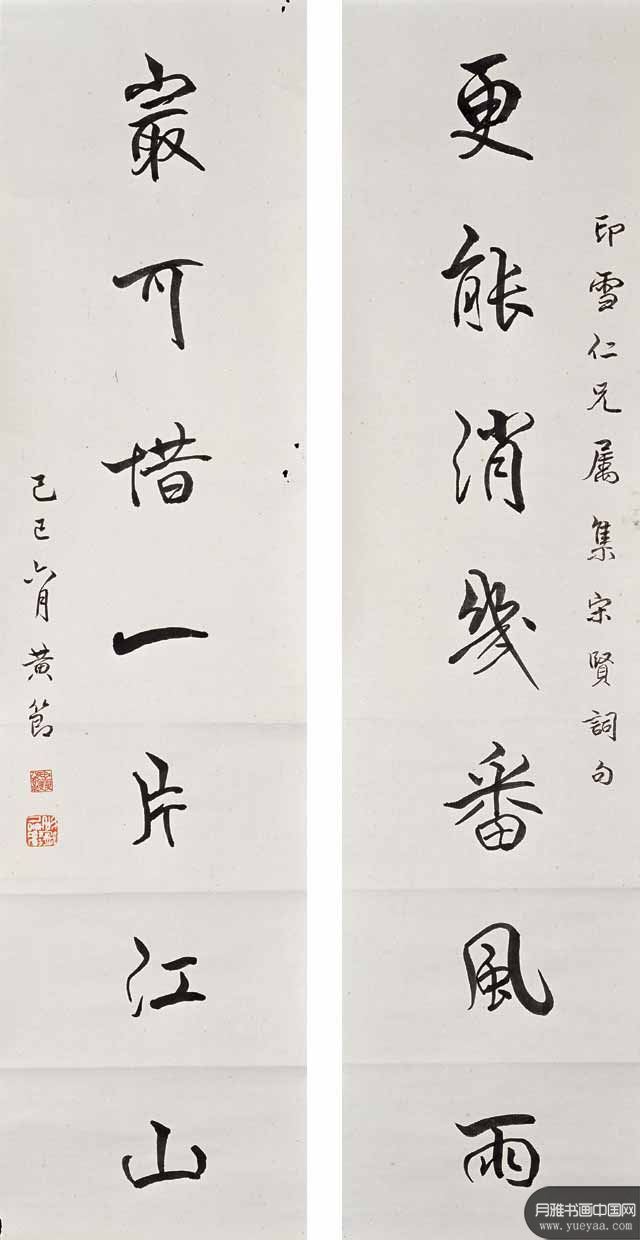 印雪仁兄属集宋賢詞句
更能消幾番風雨
最可惜一片江山
己巳六月黄節
月雅书画中国网
www.yueyaa.com